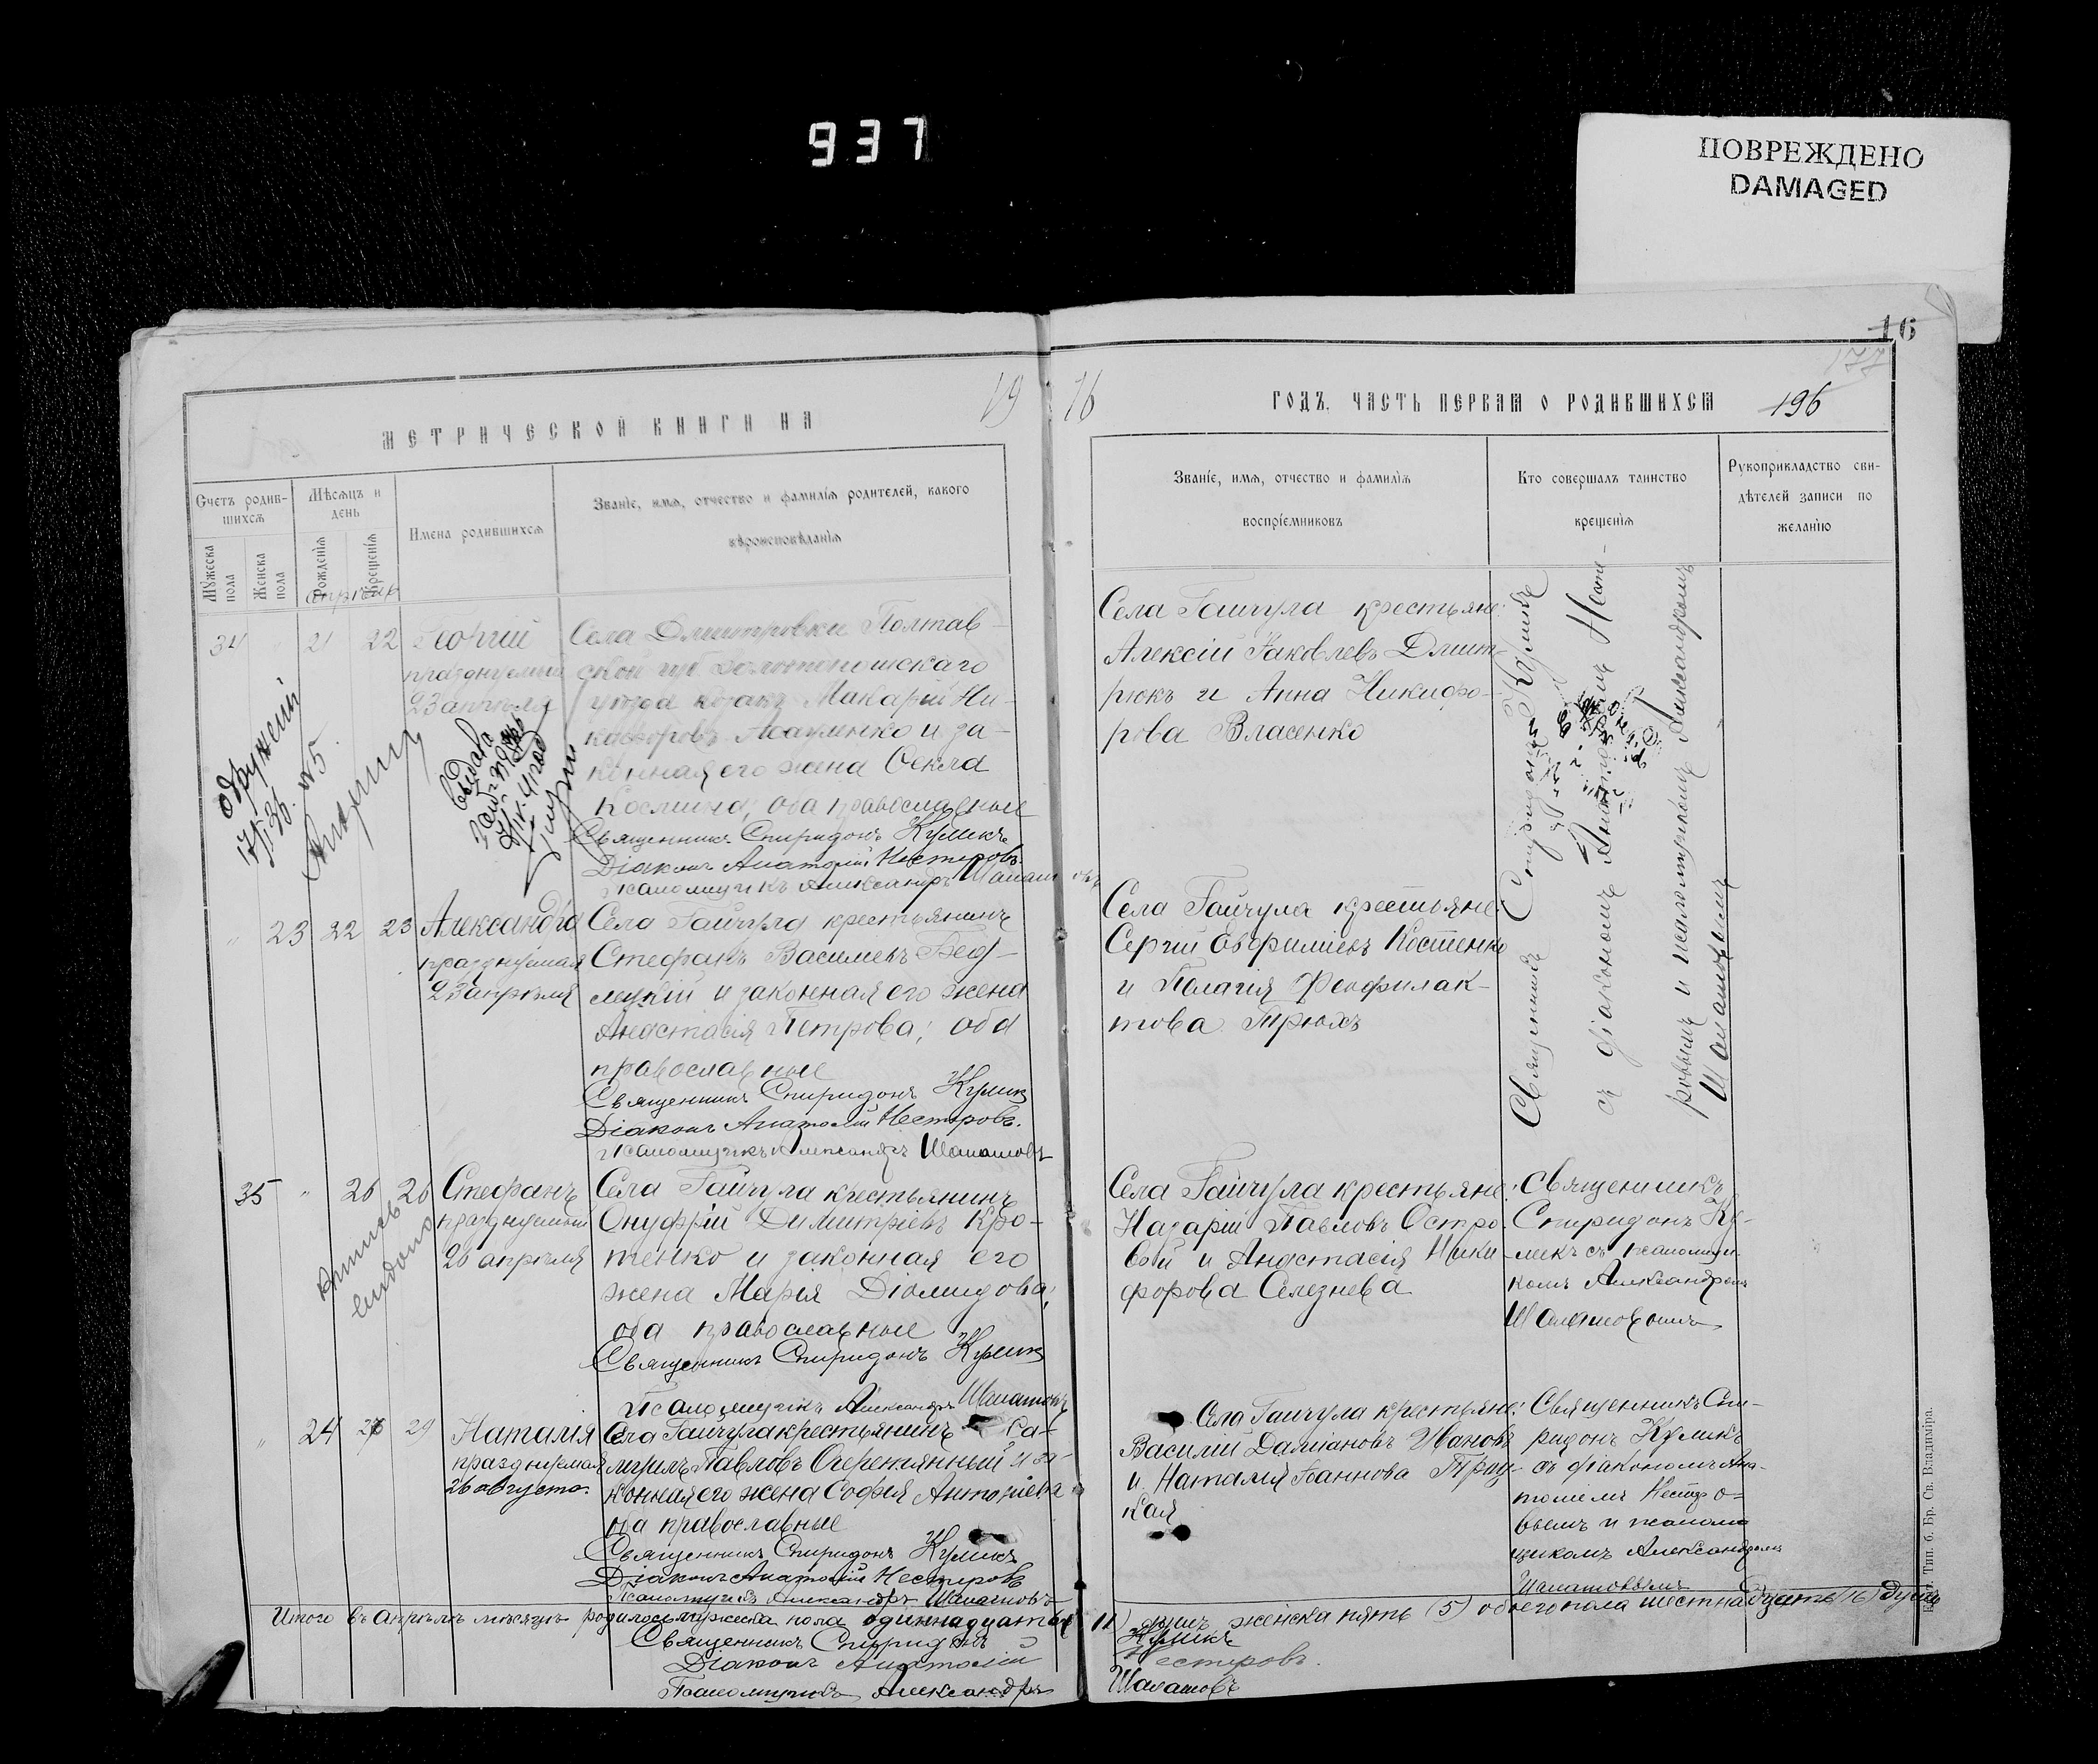 937
ПОВРЕЖДЕНО
DAMAGED
16
177
МЕТРИЧЕСКОЙ КНИГИ НА
19
16
ГОДЪ. ЧАСТЬ ПЕРВАЯ О РОДИВШИХСЯ
196
Счетъ родив-
шихся
Мѣсяцъ и
день
Мужеска
пола
Женска
пола
Рожденія
Крещенія
Имена родившихся
Званіе, имя, отчество и фамилія родителей, какого
вѣроисповѣданія
Званіе, имя, отчество и фамилія
воспріемниковъ
Кто совершалъ таинство
крещенія
Рукоприкладство сви-
дѣтелей записи по
желанію
апрѣль
34 21 22 Георгій
празднуемый
23 апрѣля
Села Дмитровки Полтав-
ской губ Золотоношскаго
уѣзда козакъ Макарій Ни-
кифоровъ и за-
конная его жена Ѳекла
Космина, оба православные
Священникъ Спиридонъ Куликъ
Діаконъ Анатолій Нестеровъ
Псаломщикъ Александръ Шалашовъ
Села Гайчула крестьяне:
Алексій Яковлевъ Дмит-
рюкъ и Анна Никифо-
рова Власенко
Священникъ Спиридонъ Куликъ
съ діакономъ Анатоліемъ Несте-
ровымъ и псаломщикомъ Александромъ
Шалашовымъ
" 23 22 23 Александра
празднуемая
23 апрѣля
Села Гайчула крестьянинъ
Стефанъ Василіевъ Бед-
и законная его жена
Анастасія Петрова; оба
православные
Священникъ Спиридонъ Куликъ
Діаконъ Анатолій Нестеровъ.
Псаломщикъ Александръ Шалашовъ
Села Гайчула крестьяне:
Сергій Евфиміевъ Костенко
и Пелагія Феофилак-
това Трюхъ
35 " 26 26 Стефанъ
празднуемый
26 апрѣля
Села Гайчула крестьянинъ
Онуфрій Димитріевъ Кро-
тенко и законная его
жена Марія Діомидова;
оба православные
Священникъ Спиридонъ Куликъ
Псаломщикъ Александръ Шалашовъ
Села Гайчула крестьяне:
Назарій Павловъ Остро-
вой и Анастасія Ники-
форова Селезнева
Священникъ
Спиридонъ Ку-
ликъ съ псаломщи-
комъ Александромъ
Шалашовымъ
" 24 29 Наталія
празднуемая
26 августа.
Села Гайчула крестьянинъ Са-
Павловъ Очеретянный и за-
конная его жена Софія
оба православные
Священникъ Спиридонъ Куликъ
Діаконъ Анатолій Нестеровъ
Псаломщикъ Александръ Шалашовъ
Села Гайчула крестьяне:
Василій Даміановъ Ивановъ
и Наталія Іоаннова
кая
Священникъ Спи-
ридонъ Куликъ
съ діакономъ Ана-
толіемъ Нестеро-
вымъ и псалом-
щикомъ Александромъ
Шалашовымъ
Итого въ апрѣлѣ мѣсяцѣ родилось мужеска пола одиннадцать (11) душъ женска пять (5) обоего пола шестнадцать (16) душъ
Священникъ Спиридонъ Куликъ
Діаконъ Анатолій Нестеровъ.
Псаломщикъ Александръ Шалашовъ
Тип. б. Бр. Св. Владиміра.